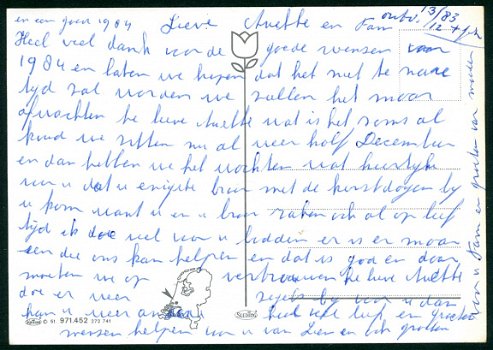 en een goed 1984 Lieve Anette en Fam ontv. 13/83
Heel veel dank voor de goede wensen voor 12
1984 en laten we hopen dat het niet te nare
tijd zal worden we zullen het maar
afwachten he lieve Anette wat is het soms al
koud we zitten nu al weer half December
en dan hebben we het nachten wat heerlijk
voor u dat u enigste broer met de kerstdagen by
u kom want u en u broer raken och al op leef
tijd ik doe veel voor u bidden er is er maar
een die ons kan helpen en dat is god en daar
moeten we op vertrouwen he lieve Anette
doe er weer by voor u dan
kan u weer heel veel lief en groeten
wensen helpen voor u van Lien en och groeten
voor u Fam en groeten van moeder
61 971.452 373 741